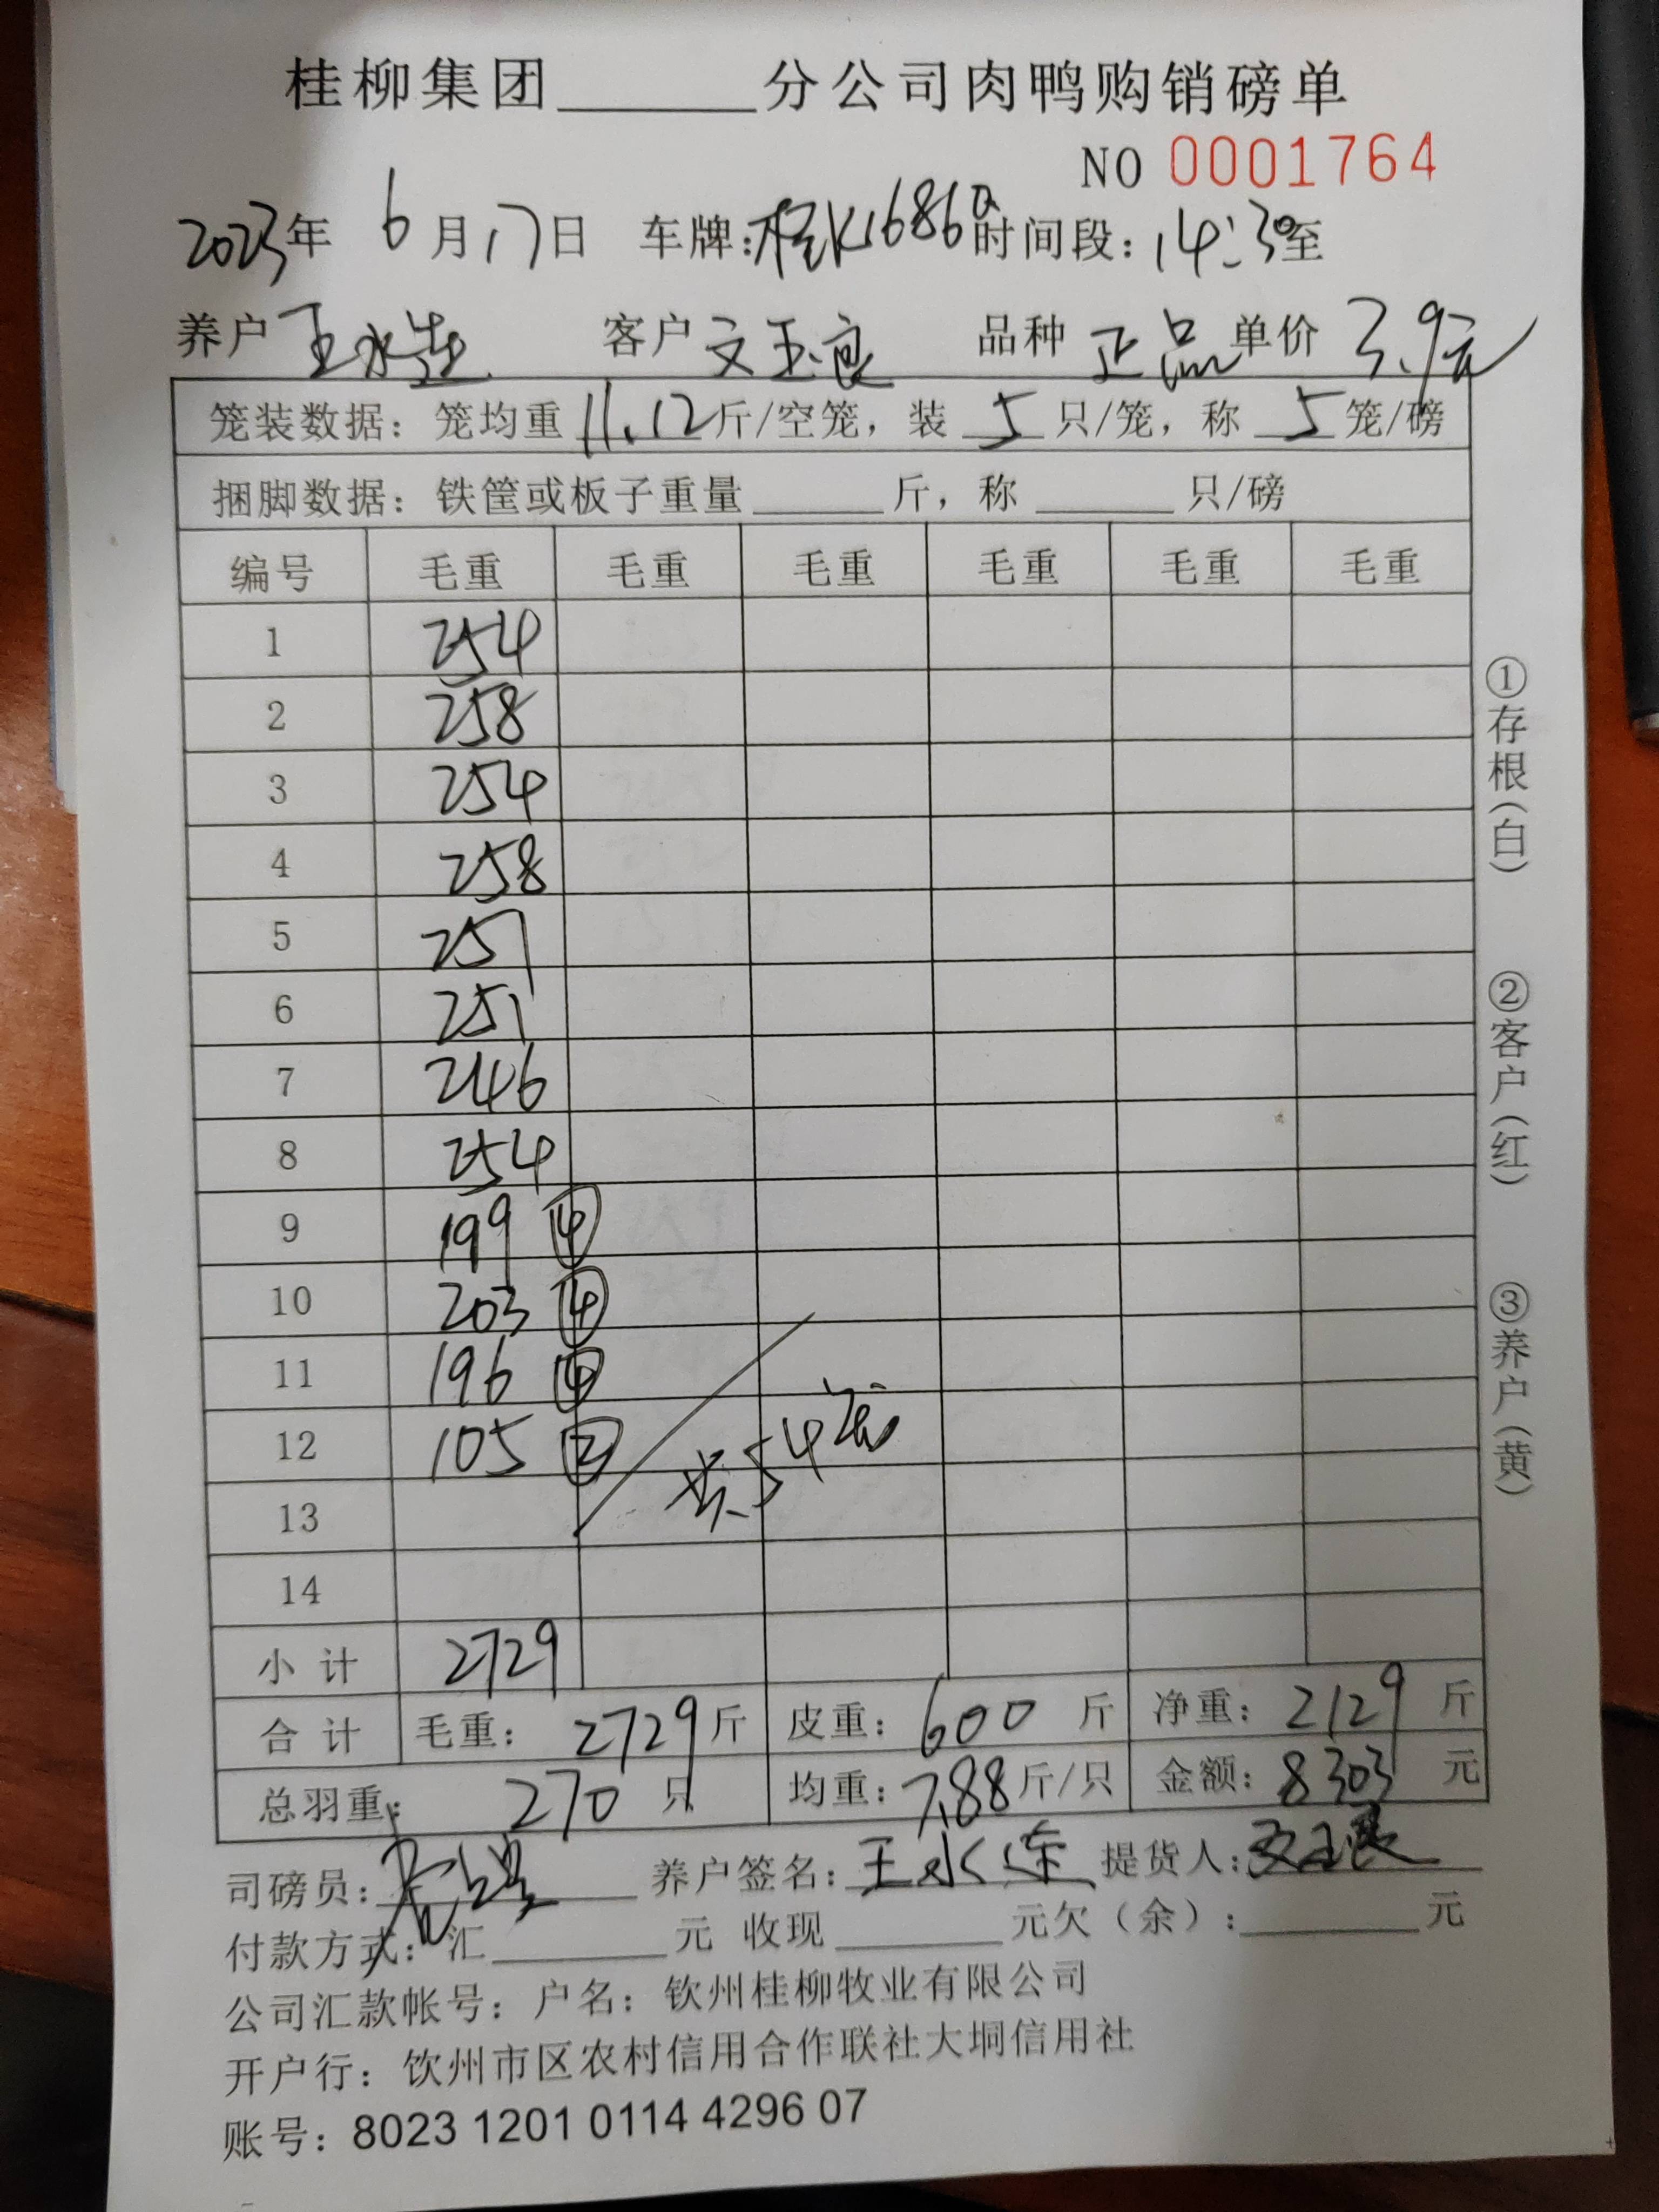 桂柳集团______分公司肉鸭购销磅单
NO 0001764
2023年 6月17日 车牌: 时间段: 14:30至
养户 王水连 客户 文玉良 品种 正品 单价 3.9元
笼装数据: 笼均重 11.12斤/空笼, 装 5 只/笼, 称 5 笼/磅
捆脚数据: 铁筐或板子重量______斤, 称______只/磅
编号 毛重 毛重 毛重 毛重 毛重 毛重
1 254
2 258
3 254
4 258
5 251
6 251
7 246
8 254
9 199 ④
10 203 ④
11 196 ④
12 105 ②
共54笼
13
14
小计 2729
合计 毛重: 2729斤 皮重: 600斤 净重: 2129斤
总羽重: 270只 均重: 7.88斤/只 金额: 8303元
司磅员: 养户签名: 王水连 提货人: 文玉良
付款方式: 汇______元 收现______元欠（余）:______元
公司汇款帐号: 户名: 钦州桂柳牧业有限公司
开户行: 钦州市区农村信用合作联社大垌信用社
账号: 8023 1201 0114 4296 07
①存根(白) ②客户(红) ③养户(黄)